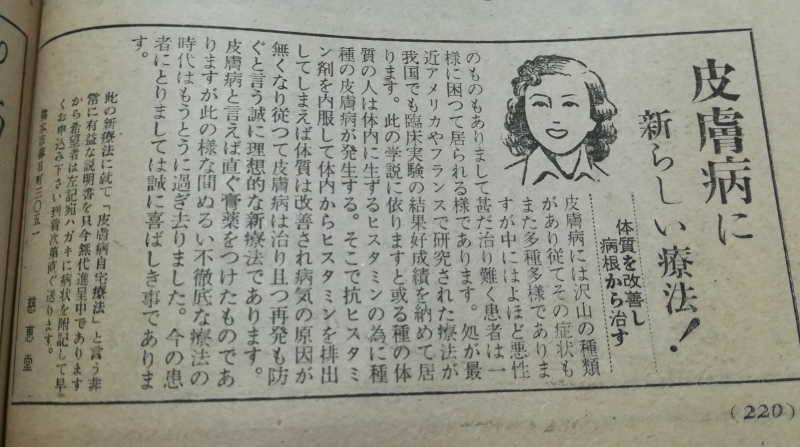 皮膚病に
新らしい療法！
体質を改善し
病根から治す
皮膚病には沢山の種類
があり従てその症状も
また多種多様でありま
すが中にはよほど悪性
のものもありまして甚だ治り難く患者は一
様に困つて居られる様であります。処が最
近アメリカやフランスで研究された療法が
我国でも臨床実験の結果好成績を納めて居
ります。此の学説に依りますと或る種の体
質の人は体内に生ずるヒスタミンの為に種
種の皮膚病が発生する。そこで抗ヒスタミ
ン剤を内服して体内からヒスタミンを排出
してしまえば体質は改善され病気の原因が
無くなり従つて皮膚病は治り且つ再発も防
ぐと言う誠に理想的な新療法であります。
皮膚病と言えば直ぐ膏薬をつけたものであ
りますが此の様な間ぬるい不徹底な療法の
時代はもうとうに過ぎ去りました。今の患
者にとりましては誠に喜ばしき事でありま
す。
此の新療法に就て「皮膚病自宅療法」と言う非
常に有益な説明書を只今無代進呈中であります
から希望者は左記宛ハガキに病状を附記して早
くお申込み下さい到着次第直ぐ送ります。
熊本市春日町三〇五一
慈恵堂
(220)